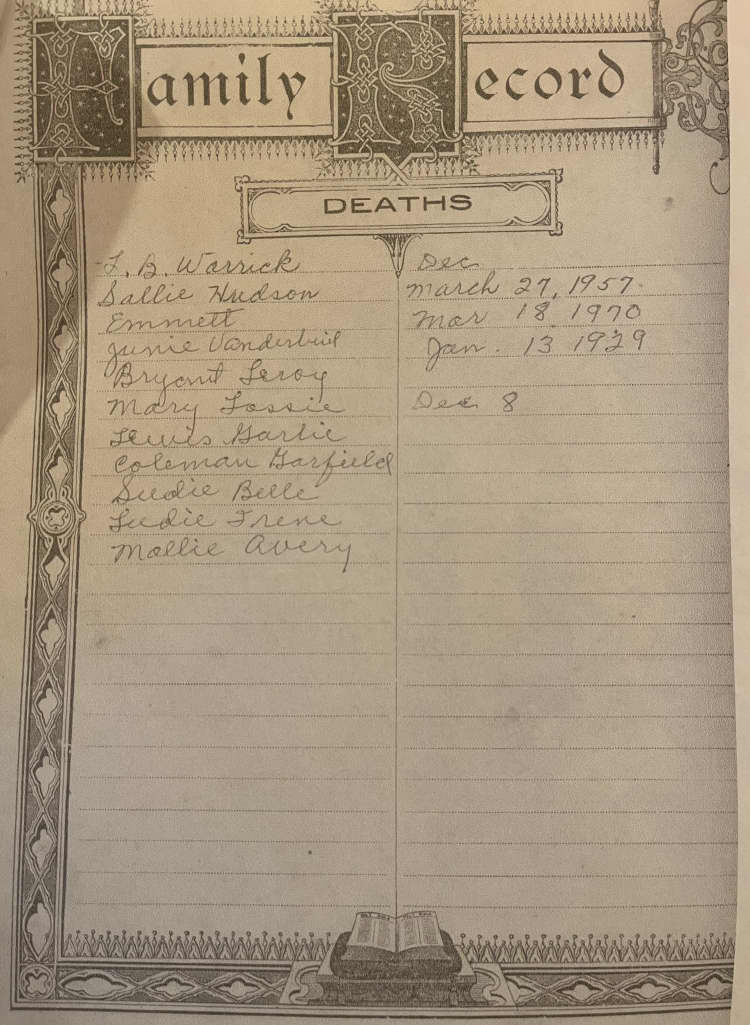 Family Record
DEATHS
L. B. Warrick Dec
Sallie Hudson March 27, 1957.
Emmett Mar 18 1970
Junie Vanderbuil Jan. 13 1929
Bryant Leroy
Mary Lossie Dec 8
Lewis Garlie
Coleman Garfield
Sudie Belle
Ludie Irene
Mollie Avery